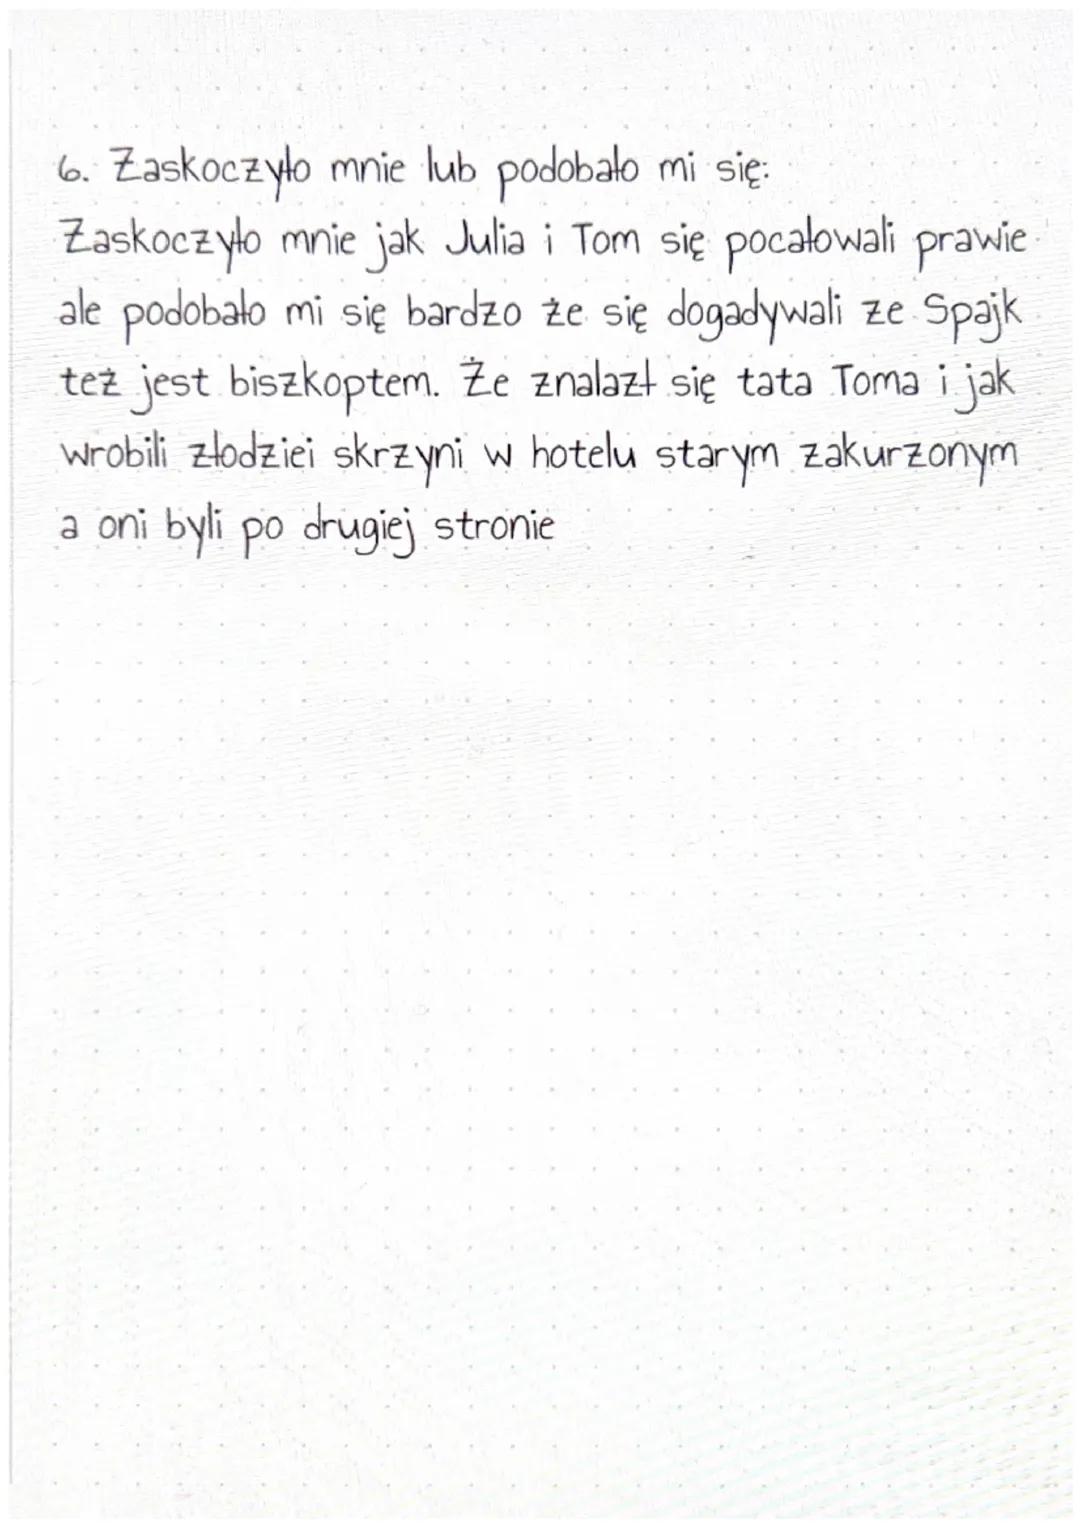 6. Zaskoczyło mnie lub podobało mi się:
Zaskoczyło mnie jak Julia i Tom się pocałowali prawie
ale podobało mi się bardzo że się dogadywali ze Spajk
też jest biszkoptem. Że znalazł się tata Toma i jak
wrobili złodziei skrzyni w hotelu starym zakurzonym
a oni byli po drugiej stronie